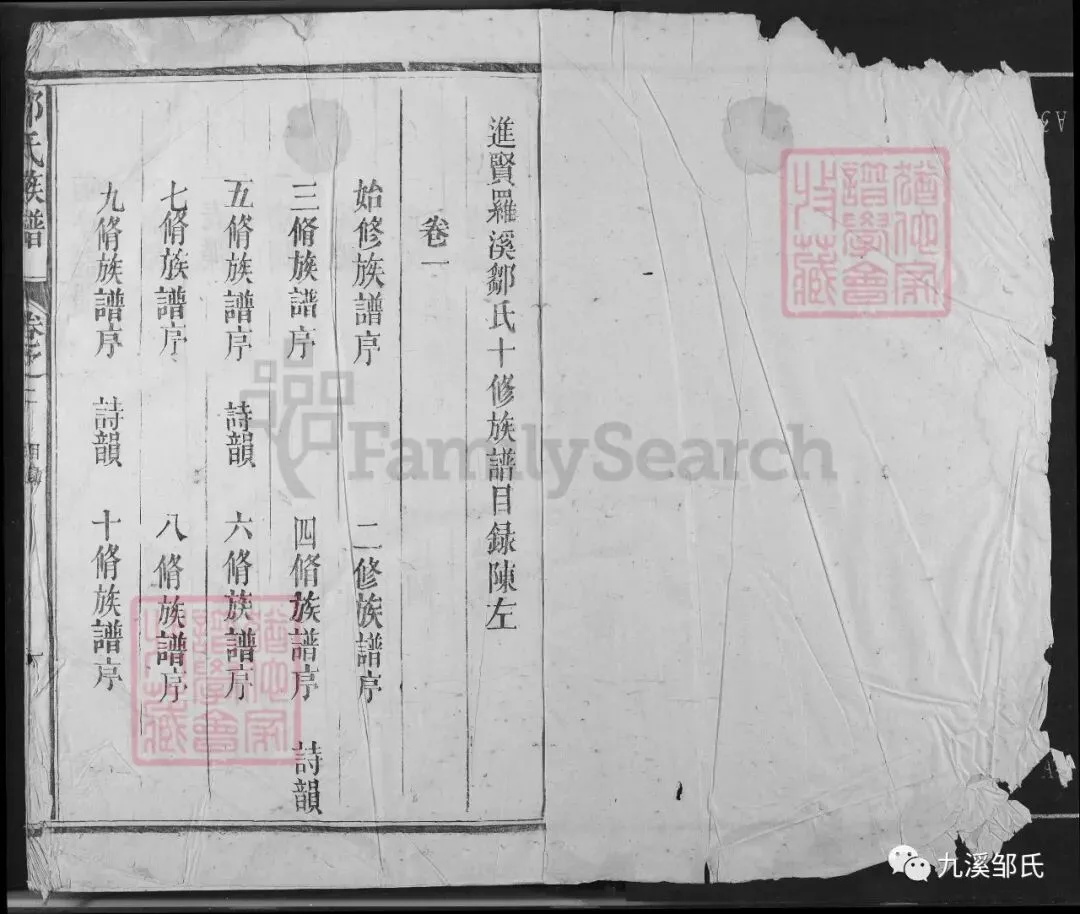 進賢羅溪鄒氏十修族譜目錄陳左
卷一
始修族譜序 二修族譜序
三脩族譜序 四脩族譜序 詩韻
五脩族譜序 詩韻 六脩族譜序
七脩族譜序 八脩族譜序
九脩族譜序 詩韻 十脩族譜序
氏族譜
卷之一
譜學會
收藏
譜學會
收藏
FamilySearch
九溪邹氏
A3